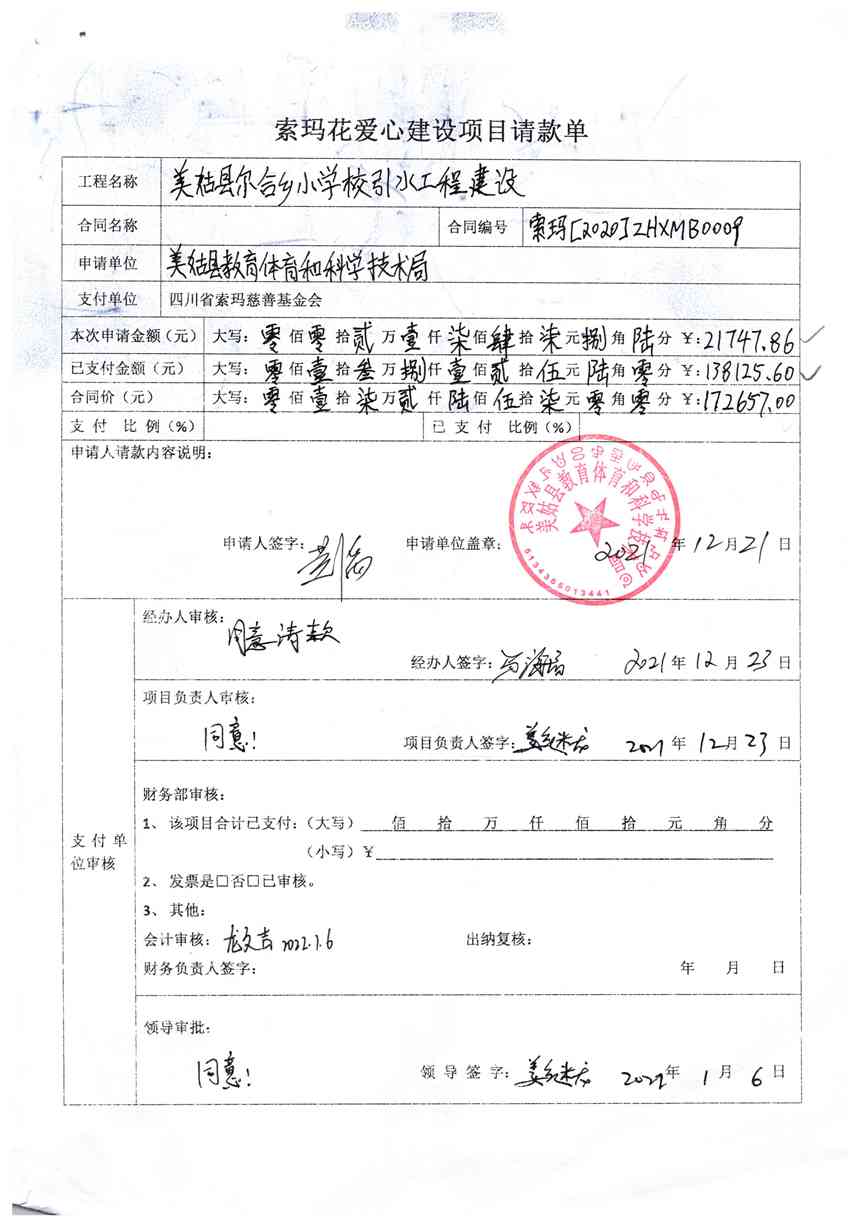 索玛花爱心建设项目请款单
工程名称 美姑县尔合乡小学校引水工程建设
合同名称 合同编号 索玛[2020]ZHXMB0009
申请单位 美姑县教育体育和科学技术局
支付单位 四川省索玛慈善基金会
本次申请金额（元） 大写：零佰零拾贰万壹仟柒佰肆拾柒元捌角陆分 ¥:21747.86
已支付金额（元） 大写：零佰壹拾叁万捌仟壹佰贰拾伍元陆角零分 ¥:138125.60
合同价（元） 大写：零佰壹拾柒万贰仟陆佰伍拾柒元零角零分 ¥:172657.00
支付 比例（%） 已支付 比例（%）
申请人请款内容说明：
美姑县教育体育和科学技术局
申请人签字： 申请单位盖章： 2021年12月21日
5134365013441
经办人审核：
同意请款
经办人签字： 2021年12月23日
项目负责人审核：
同意！
项目负责人签字： 2021年12月23日
支付单位审核
财务部审核：
1、该项目合计已支付：（大写） 佰 拾 万 仟 佰 拾 元 角 分
（小写）¥
2、发票是□否□已审核。
3、其他：
会计审核： 龙文吉 2022.1.6 出纳复核：
财务负责人签字： 年 月 日
领导审批：
同意！
领导签字： 2022年1月6日